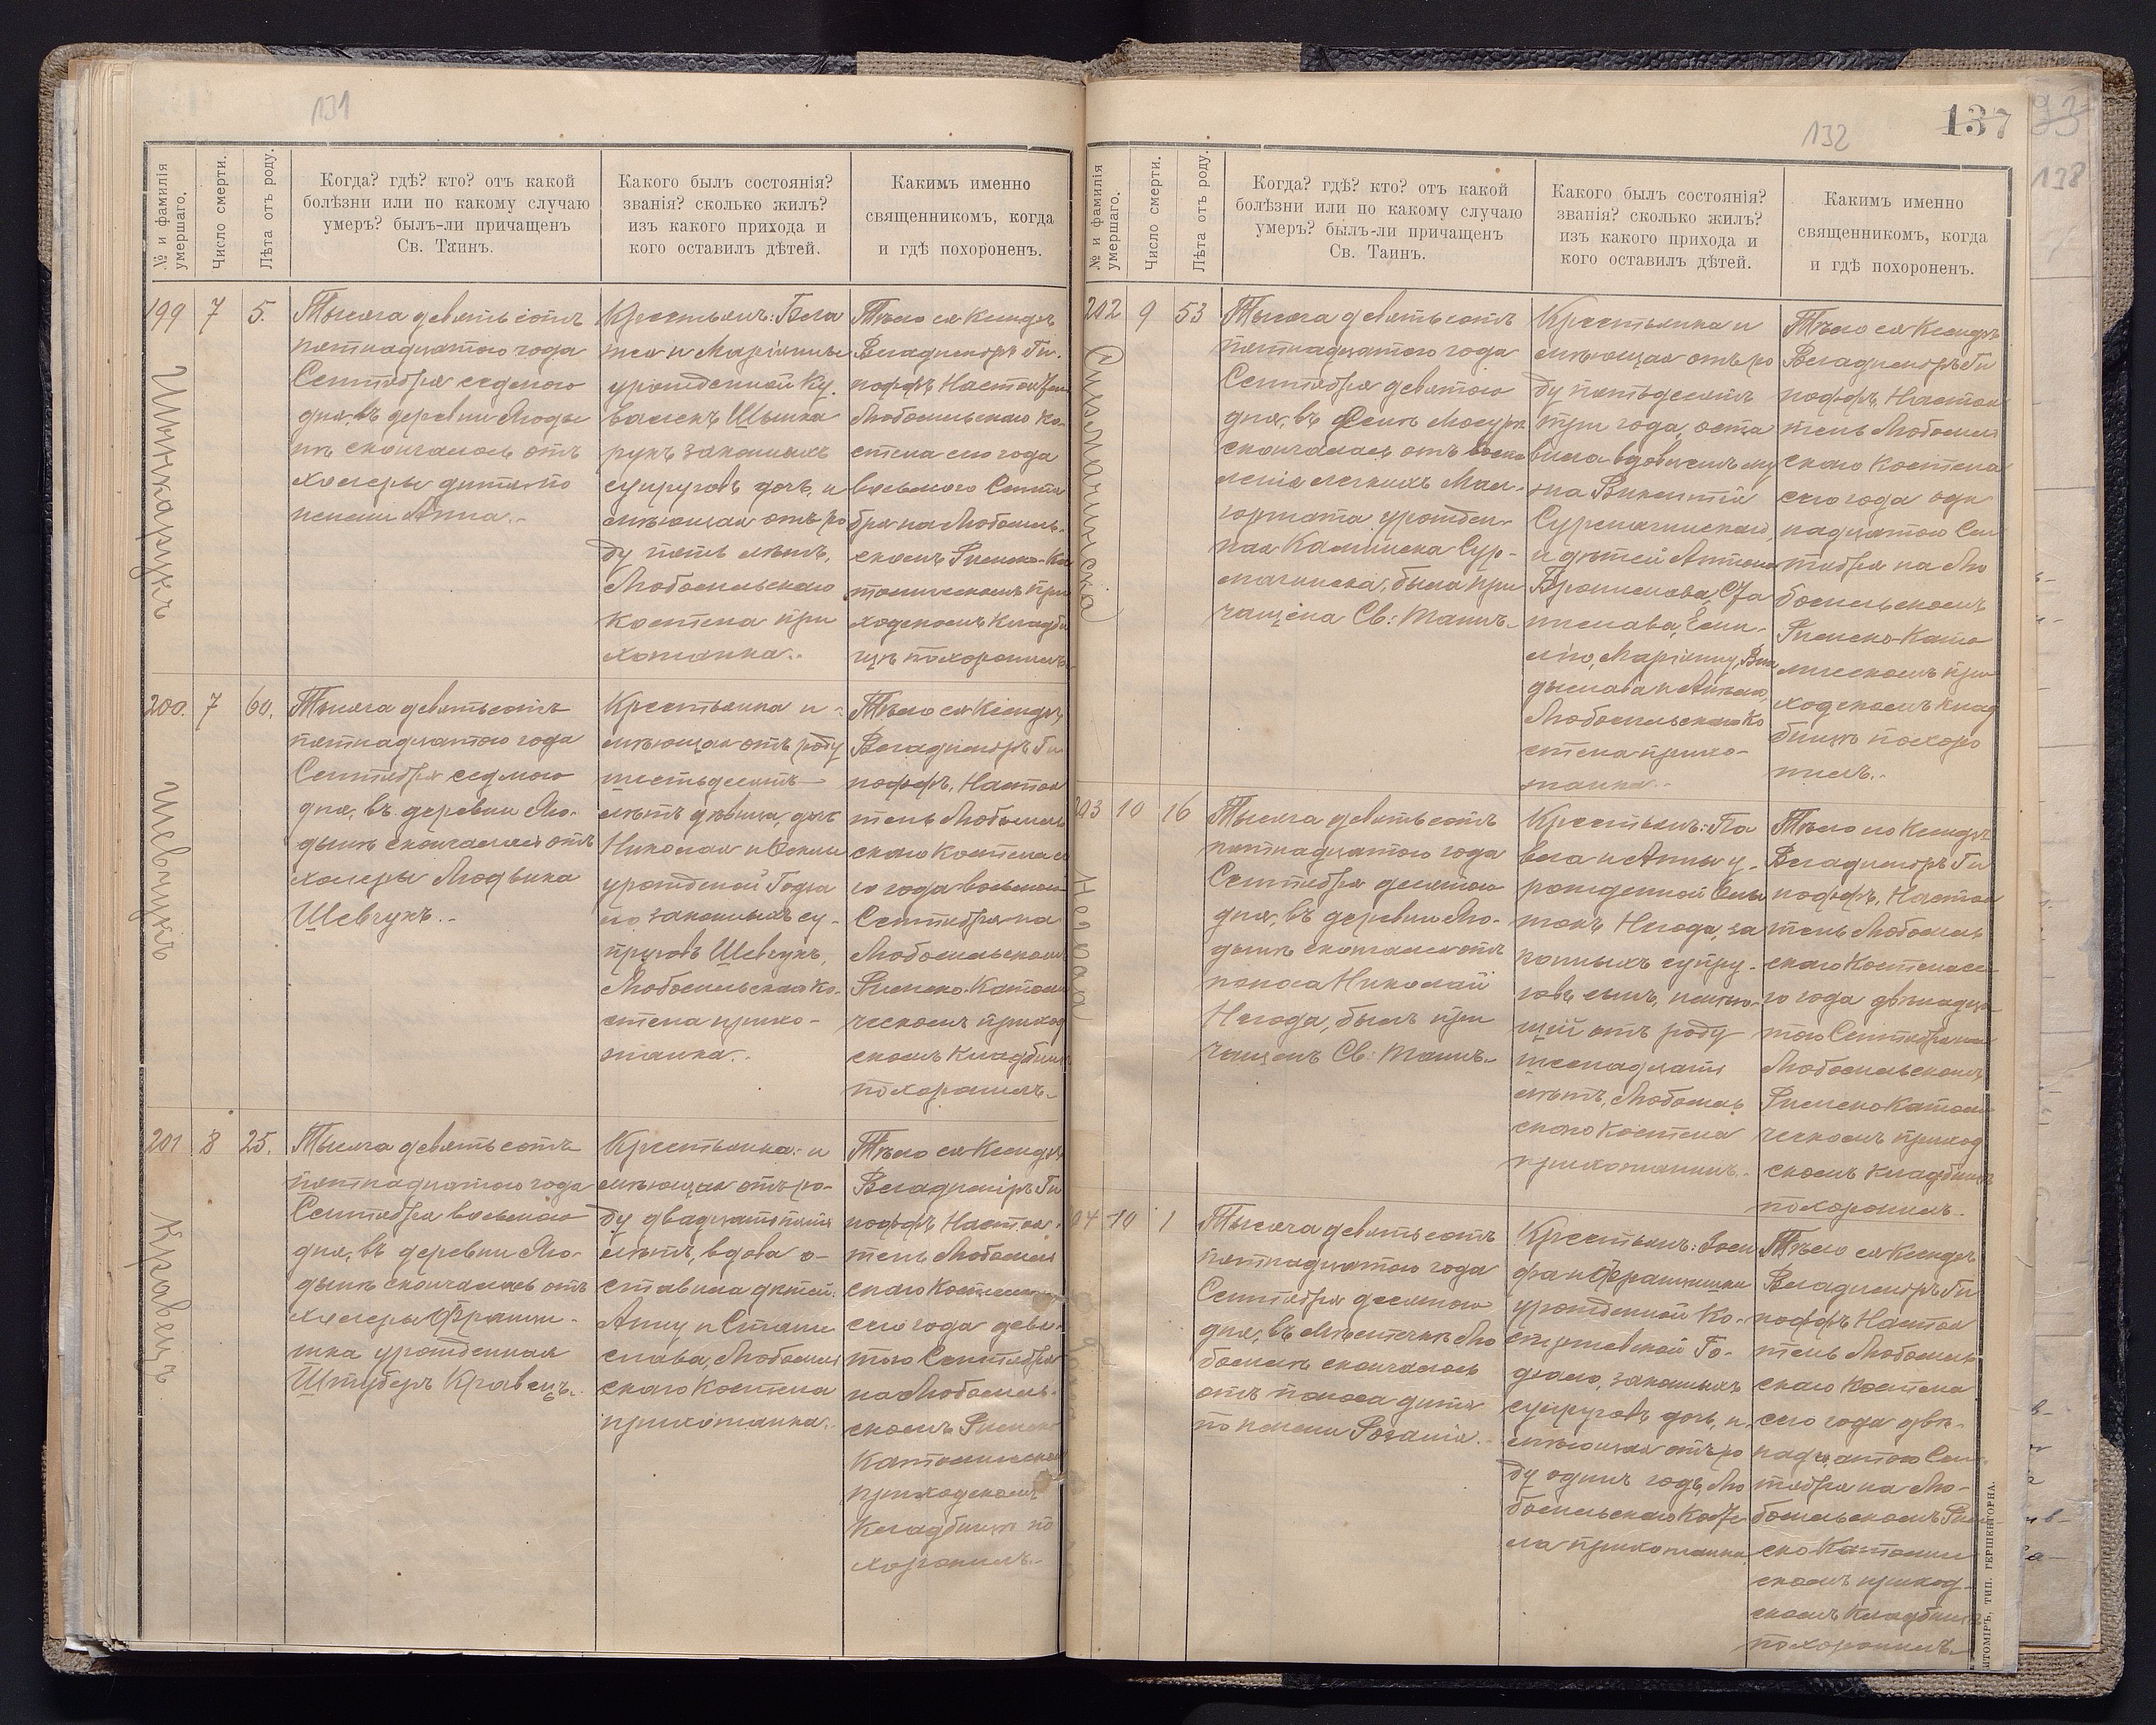 131
№ и фамилія умершаго.
Число смерти.
Лѣта отъ роду.
Когда? гдѣ? кто? отъ какой
болѣзни или по какому случаю
умеръ? былъ-ли причащенъ
Св. Таинъ.
Какого былъ состоянія?
званія? сколько жилъ?
изъ какого прихода и
кого оставилъ дѣтей.
Какимъ именно
священникомъ, когда
и гдѣ похороненъ.
199
7
5.
Тысяча девятьсотъ
пятнадцатого года
Сентября седьмого
дня, въ деревни Люды
нѣ скончалось отъ
холеры дитя по
имени Анна.-
Крестьянъ:
и Маріянны
урожденной Ку.
Шынка
рукъ законныхъ
супруговъ дочь, и
мѣющая отъ ро
ду пять лѣтъ,
Любомльскаго
костела при
хожанка.-
Тѣло ея Ксендзъ
Владиміръ Ги.
поффъ Настоятель
Любомльскаго ко-
стела сего года
восьмого Сентя
бря на Любомль-
скомъ Римско-Ка
толическомъ при
ходскомъ кладби
щѣ похоронилъ.
Шынкарукъ
200.
7
60.
Тысяча девятьсотъ
пятнадцатого года
Сентября седмого
дня, въ деревни Лю-
дынѣ скончалась отъ
холеры Людвика
Шевчукъ.-
Крестьянка и-
мѣющая отъ роду
шестьдесятъ
лѣтъ дѣвица, дочь
Николая и
урожденой
законныхъ су-
пруговъ Шевчукъ,
Любомльскаго ко-
стела прихо-
жанка.-
Тѣло ея Ксендзъ
Владиміръ Ги
поффъ, Настоя
тель Любомль
скаго костела се
го года восьмого
Сентября на
Любомльскомъ
Римско-Католи
ческомъ приход
скомъ кладбищѣ
похоронилъ.-
Шевчукъ
201
8
25.
Тысяча девятьсотъ
пятнадцатого года
Сентября восьмого
дня, въ деревни Лю-
дынѣ скончалась отъ
холеры Франци-
шка урожденная
Штуберъ Кравецъ.
Крестьянка: и
мѣющая отъ ро-
ду двадцать пять
лѣтъ, вдова о-
ставила дѣтей:
Анну и Стани
слава, Любомль
скаго костела
прихожанка.-
Тѣло ея Ксендзъ
Владиміръ Ги
поффъ Настоя-
тель Любомль
скаго костела
сего года девя-
того Сентября
на Любомль-
скомъ Римско
Католическомъ
приходскомъ
кладбищѣ по
хоронилъ.-
Кравецъ
132
137
93
138
№ и фамилія умершаго.
Число смерти.
Лѣта отъ роду.
Когда? гдѣ? кто? отъ какой
болѣзни или по какому случаю
умеръ? былъ-ли причащенъ
Св. Таинъ.
Какого былъ состоянія?
званія? сколько жилъ?
изъ какого прихода и
кого оставилъ дѣтей.
Какимъ именно
священникомъ, когда
и гдѣ похороненъ.
202
9
53
Тысяча девятьсотъ
пятнадцатого года
Сентября девятого
дня, въ
скончалась отъ воспа
ленія легкихъ Мал-
горжата урожден-
ная Калинска Сур-
мачинска, была при
чащена Св: Таинъ.-
Крестьянка и
мѣющая отъ ро
ду пятьдесятъ
три года, оста
вила вдовцемъ му
жа Викентія
Сурмачинскаго,
и дѣтей Антона
Бронислава, Ста
нислава,
Маріянну,
Любомльскаго ко
стела прихо-
жанка.-
Тѣло ея Ксендзъ
Владиміръ Ги
поффъ, Настоя
тель Любомль
скаго костела
сего года оди
надцатого Сен
тября на Лю
бомльскомъ
Римско-Като
лическомъ при
ходскомъ клад
бищѣ похоро
нилъ.-
203
10
16
Тысяча девятьсотъ
пятнадцатого года
Сентября десятого
дня, въ деревни Лю-
дынѣ скончался отъ
поноса Николай
Негода, былъ при
чащенъ Св: Таинъ.-
Крестьянъ: Па
вла и Анны у-
рожденной
Негода, за
конныхъ супру-
говъ сынъ, имѣю-
щій отъ роду
шеснадцать
лѣтъ, Любомль
скаго костела
прихожанинъ.-
Тѣло его Ксендзъ
Владиміръ Ги
поффъ, Настоя
тель Любомль
скаго костела се
го года двѣнадца
того Сентября на
Любомльскомъ
Римско Католи
ческомъ приход
скомъ кладбищѣ
похоронилъ.
04
10
1
Тысяча девятьсотъ
пятнадцатого года
Сентября десятого
дня, въ мѣстечкѣ Лю
бомлѣ скончалось
отъ поноса дитя
по имени Розалія.-
Крестьянъ: Іоси
фа и Францишки
урожденной
законныхъ
супруговъ дочь, и
мѣющая отъ ро
ду одинъ годъ, Лю
бомльскаго косте
ла прихожанка
Тѣло ея Ксендзъ
Владиміръ Ги
поффъ Настоя
тель Любомль
скаго костела
сего года двѣ-
надцатого Сен-
тября на Лю-
бомльскомъ Рим
ско Католи
скомъ приход-
скомъ кладбищѣ
похоронилъ.-
ИТОМІРЪ, ТИП. ГЕРШЕНГОРНА.